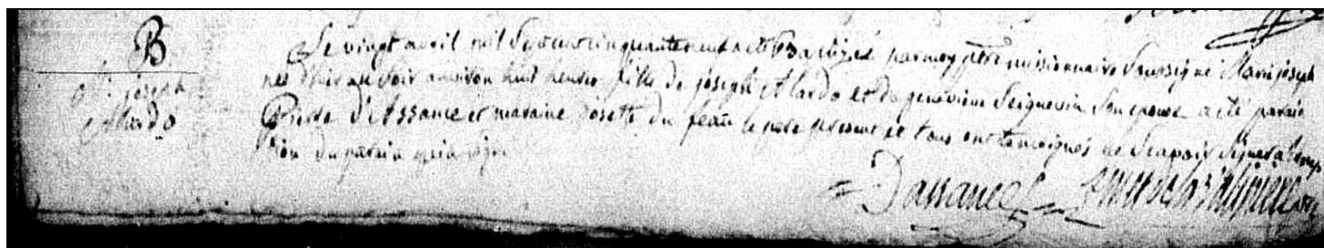 B
M. joseph
Alardo
Le vingt avril mil sept cens cinquante neuf a eté Baptizée par moy prêtre missionnaire Soussigné Marie joseph
née d'hier au Soir environ huit heures fille de joseph Alardo et de genevieve Seigneurin Son epouse a eté parain
Pierre d'Assance et maraine Josette du feau le pere present et tous ont temoignés ne Scavoir Signer a l'excep
tion du parain qui a signé
Dassance